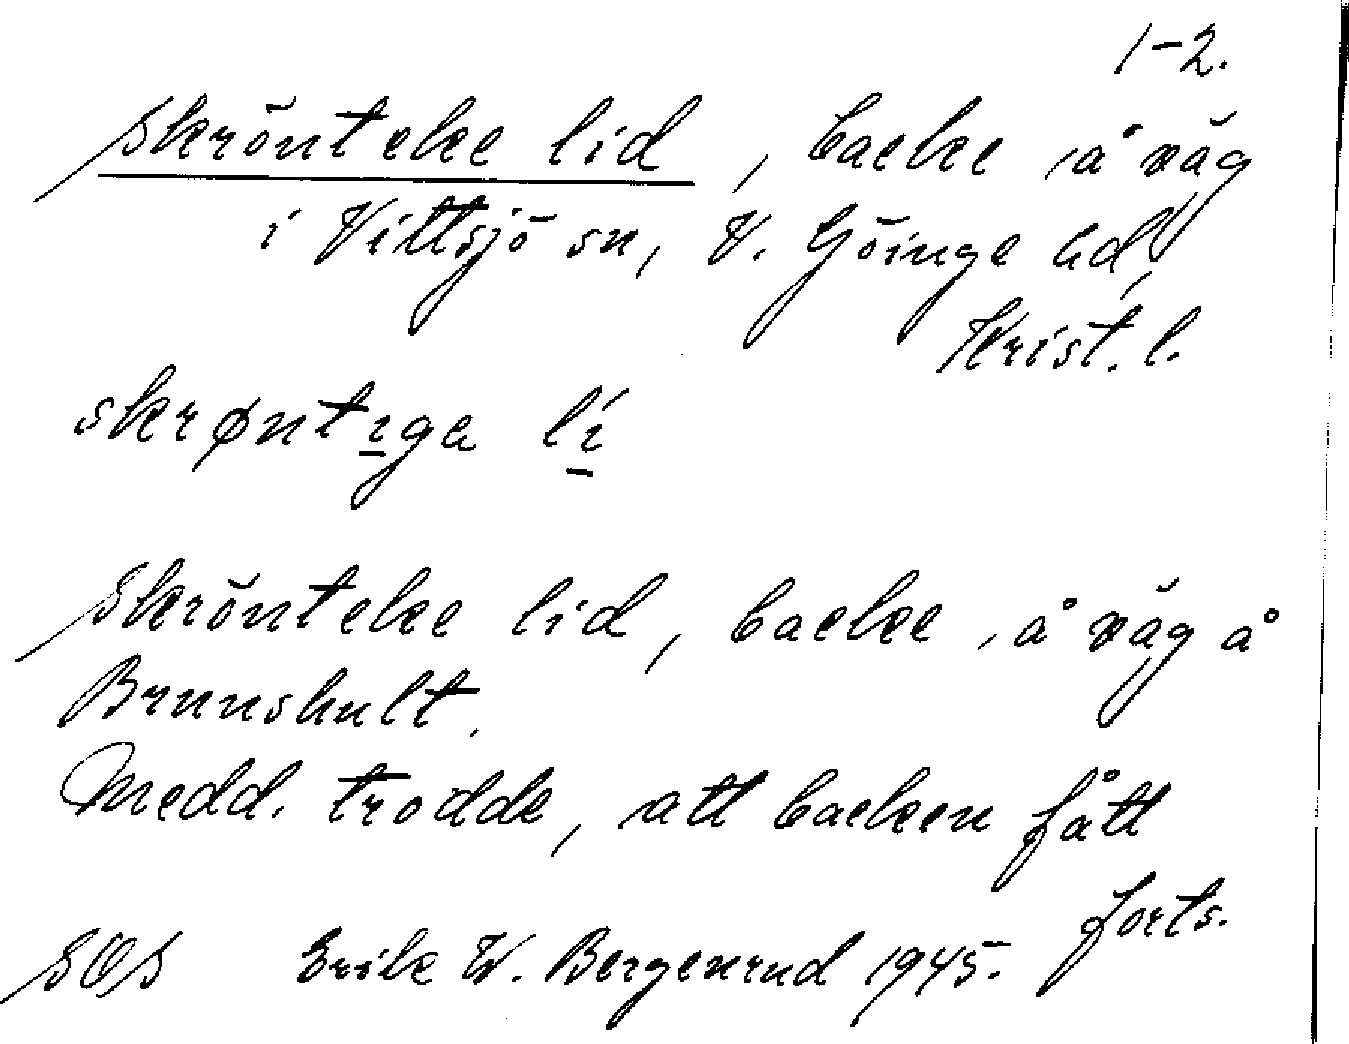 1-2.
Skrönteke lid, backe å väg
i Vittsjö sn, V. Göinge hd,
Krist. l.
skrøntıga lí
Skrönteke lid, backe å väg å
Brunshult.
Medd. trodde, att backen fått
forts.
SOS Erik W. Bergenrud 1945.